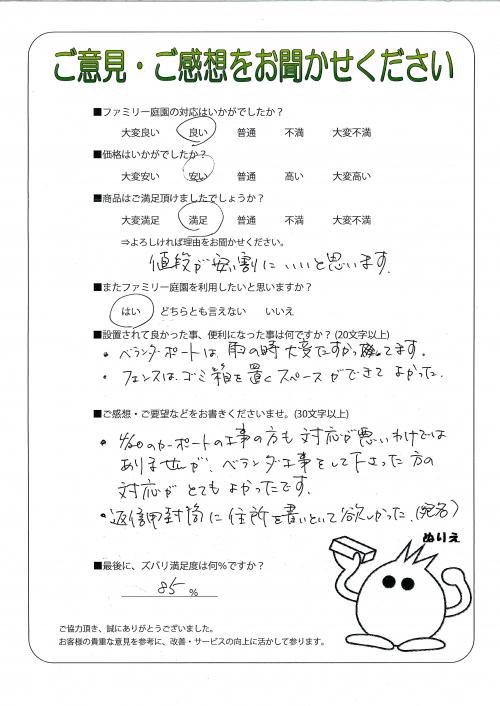 ご意見・ご感想をお聞かせください
■ファミリー庭園の対応はいかがでしたか?
大変良い 良い 普通 不満 大変不満
■価格はいかがでしたか?
大変安い 安い 普通 高い 大変高い
■商品はご満足頂けましたでしょうか?
大変満足 満足 普通 不満 大変不満
⇒よろしければ理由をお聞かせください。
値段が安い割にいいと思います。
■またファミリー庭園を利用したいと思いますか?
はい どちらとも言えない いいえ
■設置されて良かった事、便利になった事は何ですか? (20文字以上)
・ベランダポートは、雨の時大変たすかってます。
・フェンスは、ゴミ箱を置くスペースができてよかった。
■ご感想・ご要望などをお書きくださいませ。(30文字以上)
・4/20のカーポートの工事の方も対応が悪いわけでは
ありませんが、ベランダ工事をして下さった方の
対応がとてもよかったです。
・返信用封筒に住所を書いといて欲しかった。(宛名)
ぬりえ
■最後に、ズバリ満足度は何%ですか?
85 %
ご協力頂き、誠にありがとうございました。
お客様の貴重な意見を参考に、改善・サービスの向上に活かして参ります。